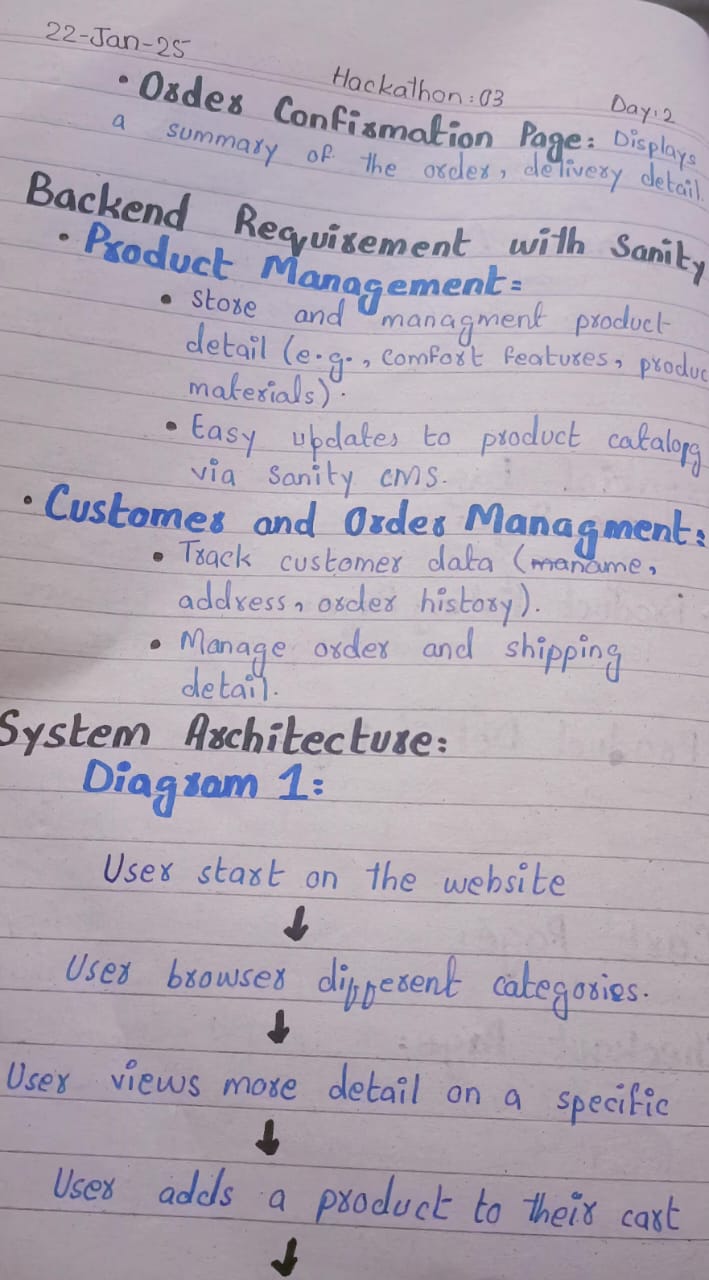 22-Jan-25
Hackathon: 03
Day: 2
• Order Confirmation Page: Displays
a summary of the order, delivery detail.
Backend Requirement with Sanity
• Product Management:
• Store and managment product
detail (e.g., comfort features, produc
materials).
• Easy updates to product catalog
via Sanity CMS.
• Customer and Order Managment:
• Track customer data (maname,
address, order history).
• Manage order and shipping
detail.
System Architecture:
Diagram 1:
User start on the website
↓
User browser different categories.
↓
User views more detail on a specific
↓
User adds a product to their cart
↓